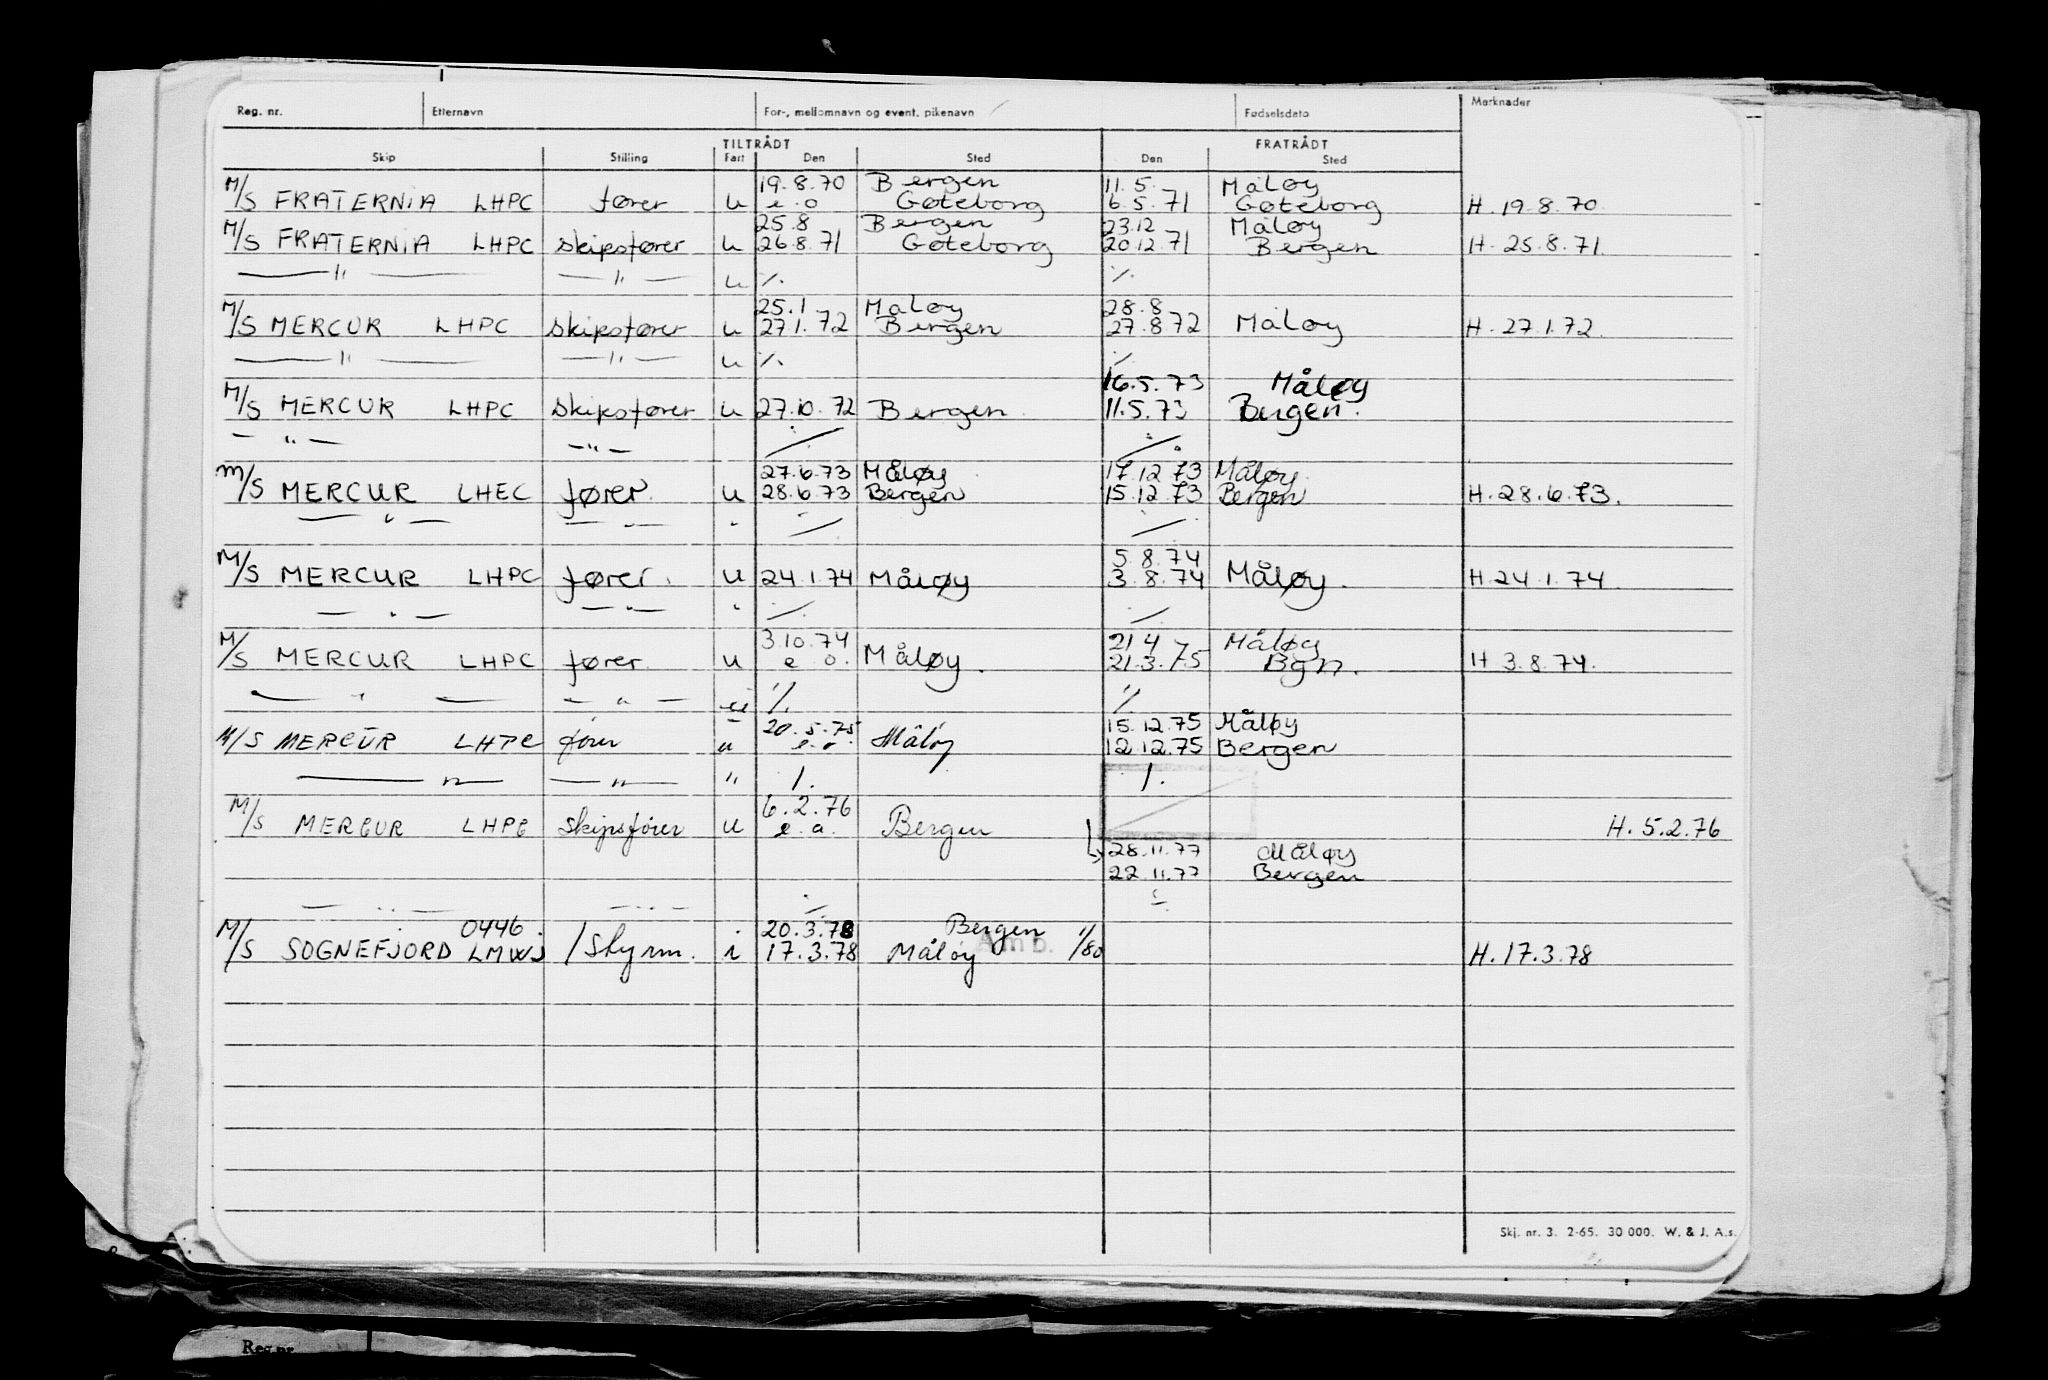 Reg. nr. Etternavn For-, mellomnavn og event. pikenavn Fødselsdato Merknader
TILTRÅDT FRATRÅDT
Skip Stilling Fart Den Sted Den Sted
19.8.70 Bergen 11.5. Måløy
M/S FRATERNIA LHPC fører u e.o Gøteborg 6.5.71 Gøteborg H. 19.8.70.
25.8 Bergen 23.12 Måløy
M/S FRATERNIA LHPC skipsfører u 26.8.71 Gøteborg 20.12.71 Bergen H. 25.8.71.
— " — — " — u ⁒ ⁒
25.1 Måløy 28.8
M/S MERCUR LHPC skipsfører u 27.1.72 Bergen 27.8.72 Måløy H. 27.1.72.
— " — — " — u ⁒ ⁒
16.5.73 Måløy
M/S MERCUR LHPC skipsfører u 27.10.72 Bergen. 11.5.73 Bergen.
— " — — " — ⁒ ⁒
27.6.73 Måløy 17.12.73 Måløy.
M/S MERCUR LHEC fører. u 28.6.73 Bergen 15.12.73 Bergen H. 28.6.73.
— " — — " — " ⁒ ⁒
5.8.74
M/S MERCUR LHPC fører. u 24.1.74 Måløy 3.8.74 Måløy. H. 24.1.74.
— " — — " — " ⁒ ⁒
3.10.74 21.4 Måløy
M/S MERCUR LHPC fører. u e.o. Måløy. 21.3.75 Bgn. H 3.8.74.
— " — — " — u ⁒ ⁒
20.5.75 15.12.75 Måløy
M/S MERCUR LHPC fører u e.o. Måløy 12.12.75 Bergen
— " — — " — " ⁒ ⁒
6.2.76
M/S MERCUR LHPC skipsfører u e.o. Bergen H. 5.2.76
28.11.77 Måløy
22.11.77 Bergen
— " — — " — ⁒ ⁒
0446. 20.3.78 Bergen 1/
M/S SOGNEFJORD LMWJ 1 Styrm. i 17.3.78 Måløy Amb. 1/80 H. 17.3.78
Skj. nr. 3. 2-65. 30 000. W. & J. A.s.
Reg.nr.